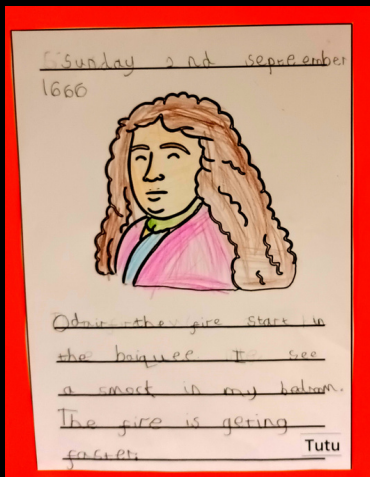 Sunday 2nd sepreember
1666
the fire start in
the baiquee I see
a smoct in my bedram.
The fire is gering
faster.
Tutu